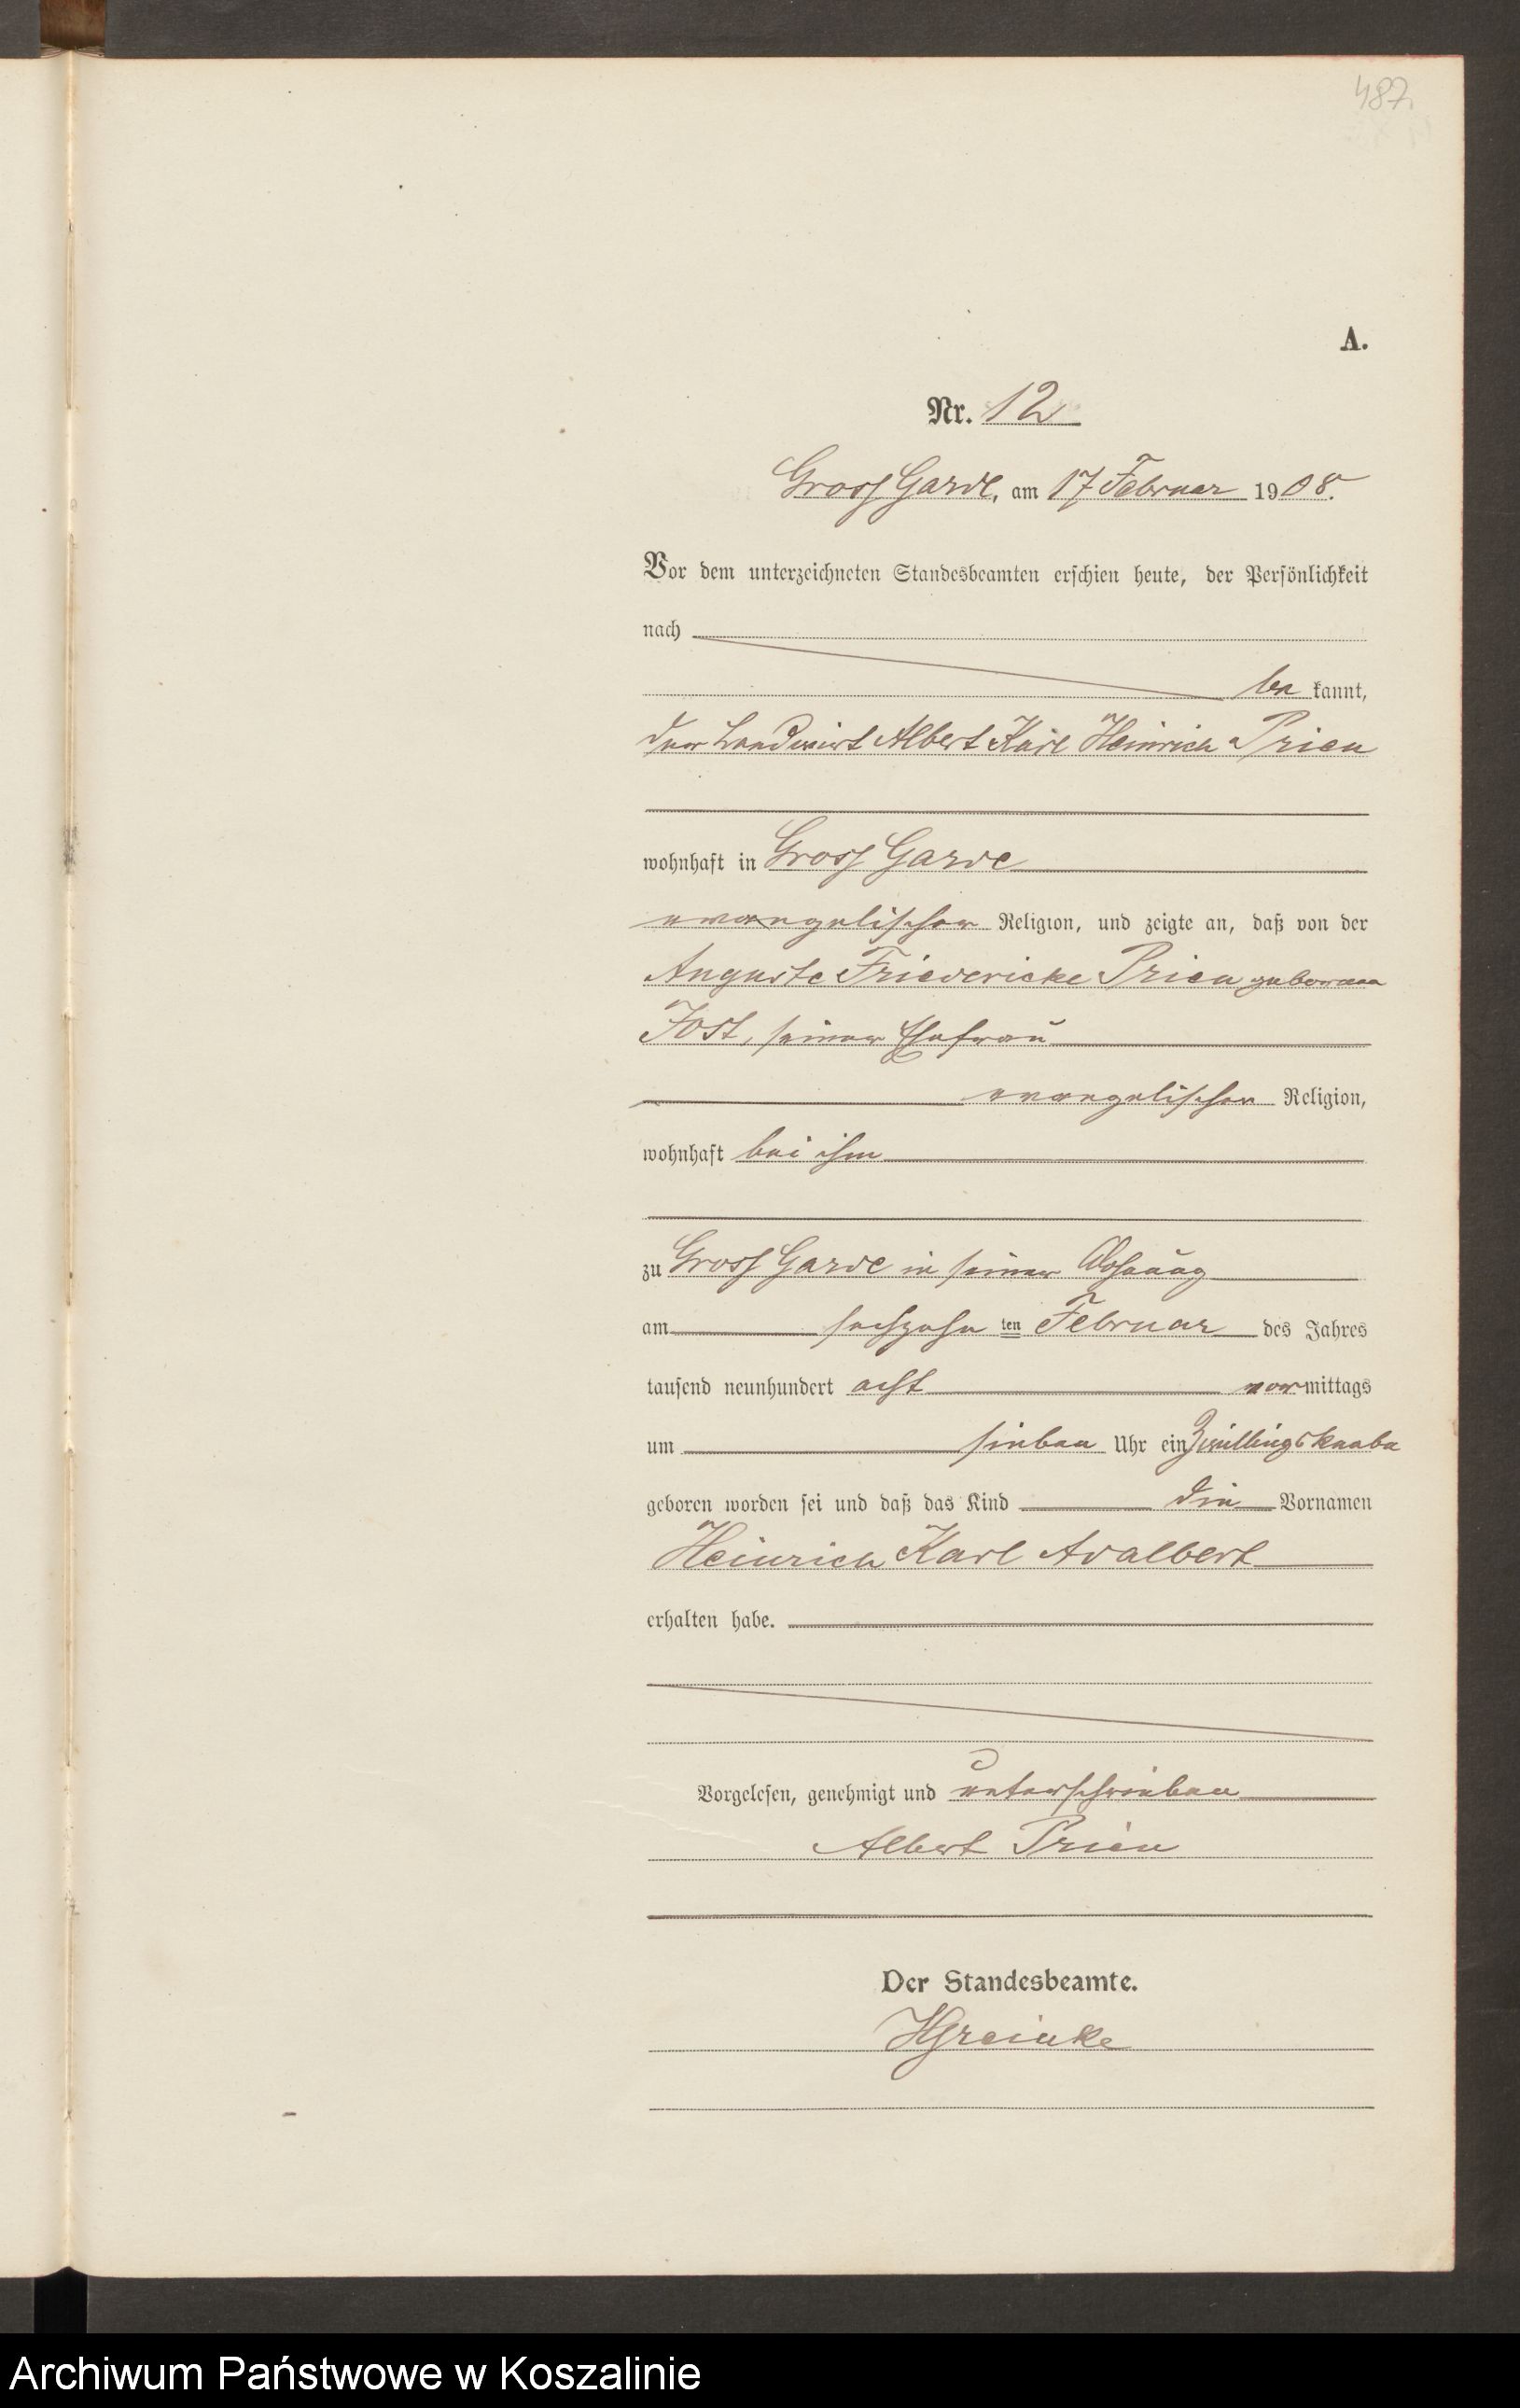 487.
A.
Nr. 12
Gross Garde, am 17 Februar 1908.
Vor dem unterzeichneten Standesbeamten erschien heute, der Persönlichkeit
nach
be kannt,
der Landwirt Albert Karl Heinrich Prien
wohnhaft in Gross Garde
evangelischer Religion, und zeigte an, daß von der
Auguste Friedericke Prien geborenen
Jost, seiner Ehefrau
evangelischer Religion,
wohnhaft bei ihm
zu Gross Garde in seiner Wohnung
am sechszehn ten Februar des Jahres
tausend neunhundert acht vormittags
um sieben Uhr ein Zwillingsknabe
geboren worden sei und daß das Kind die Vornamen
Heinrich Karl Adalbert
erhalten habe.
Vorgelesen, genehmigt und unterschrieben
Albert Prien
Der Standesbeamte.
HGreinke
Archiwum Państwowe w Koszalinie